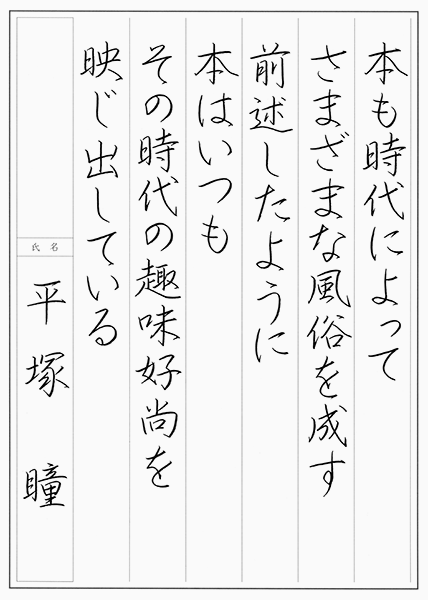 本も時代によって
さまざまな風俗を成す
前述したように
本はいつも
その時代の趣味好尚を
映じ出している
氏名
平塚瞳